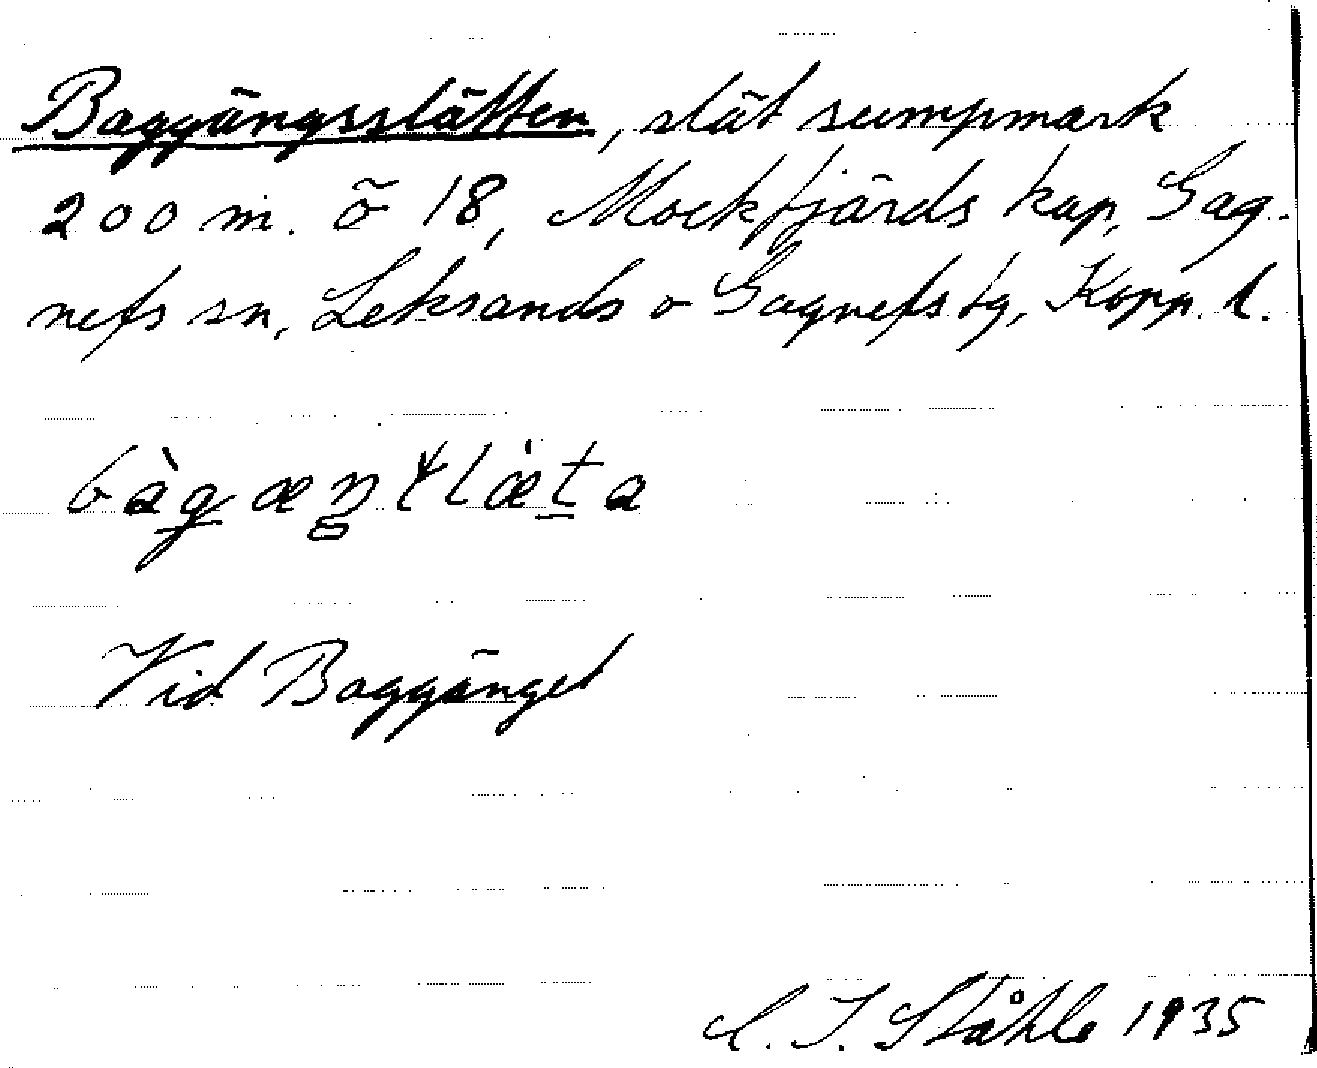 Baggängsslätten, slät sumpmark
200 m. ö 18, Mockfjärds kap, Gag-
nefs sn, Leksands o Gagnefs tg, Kopp. l.
Vid Baggänget
C. I. Ståhle 1935